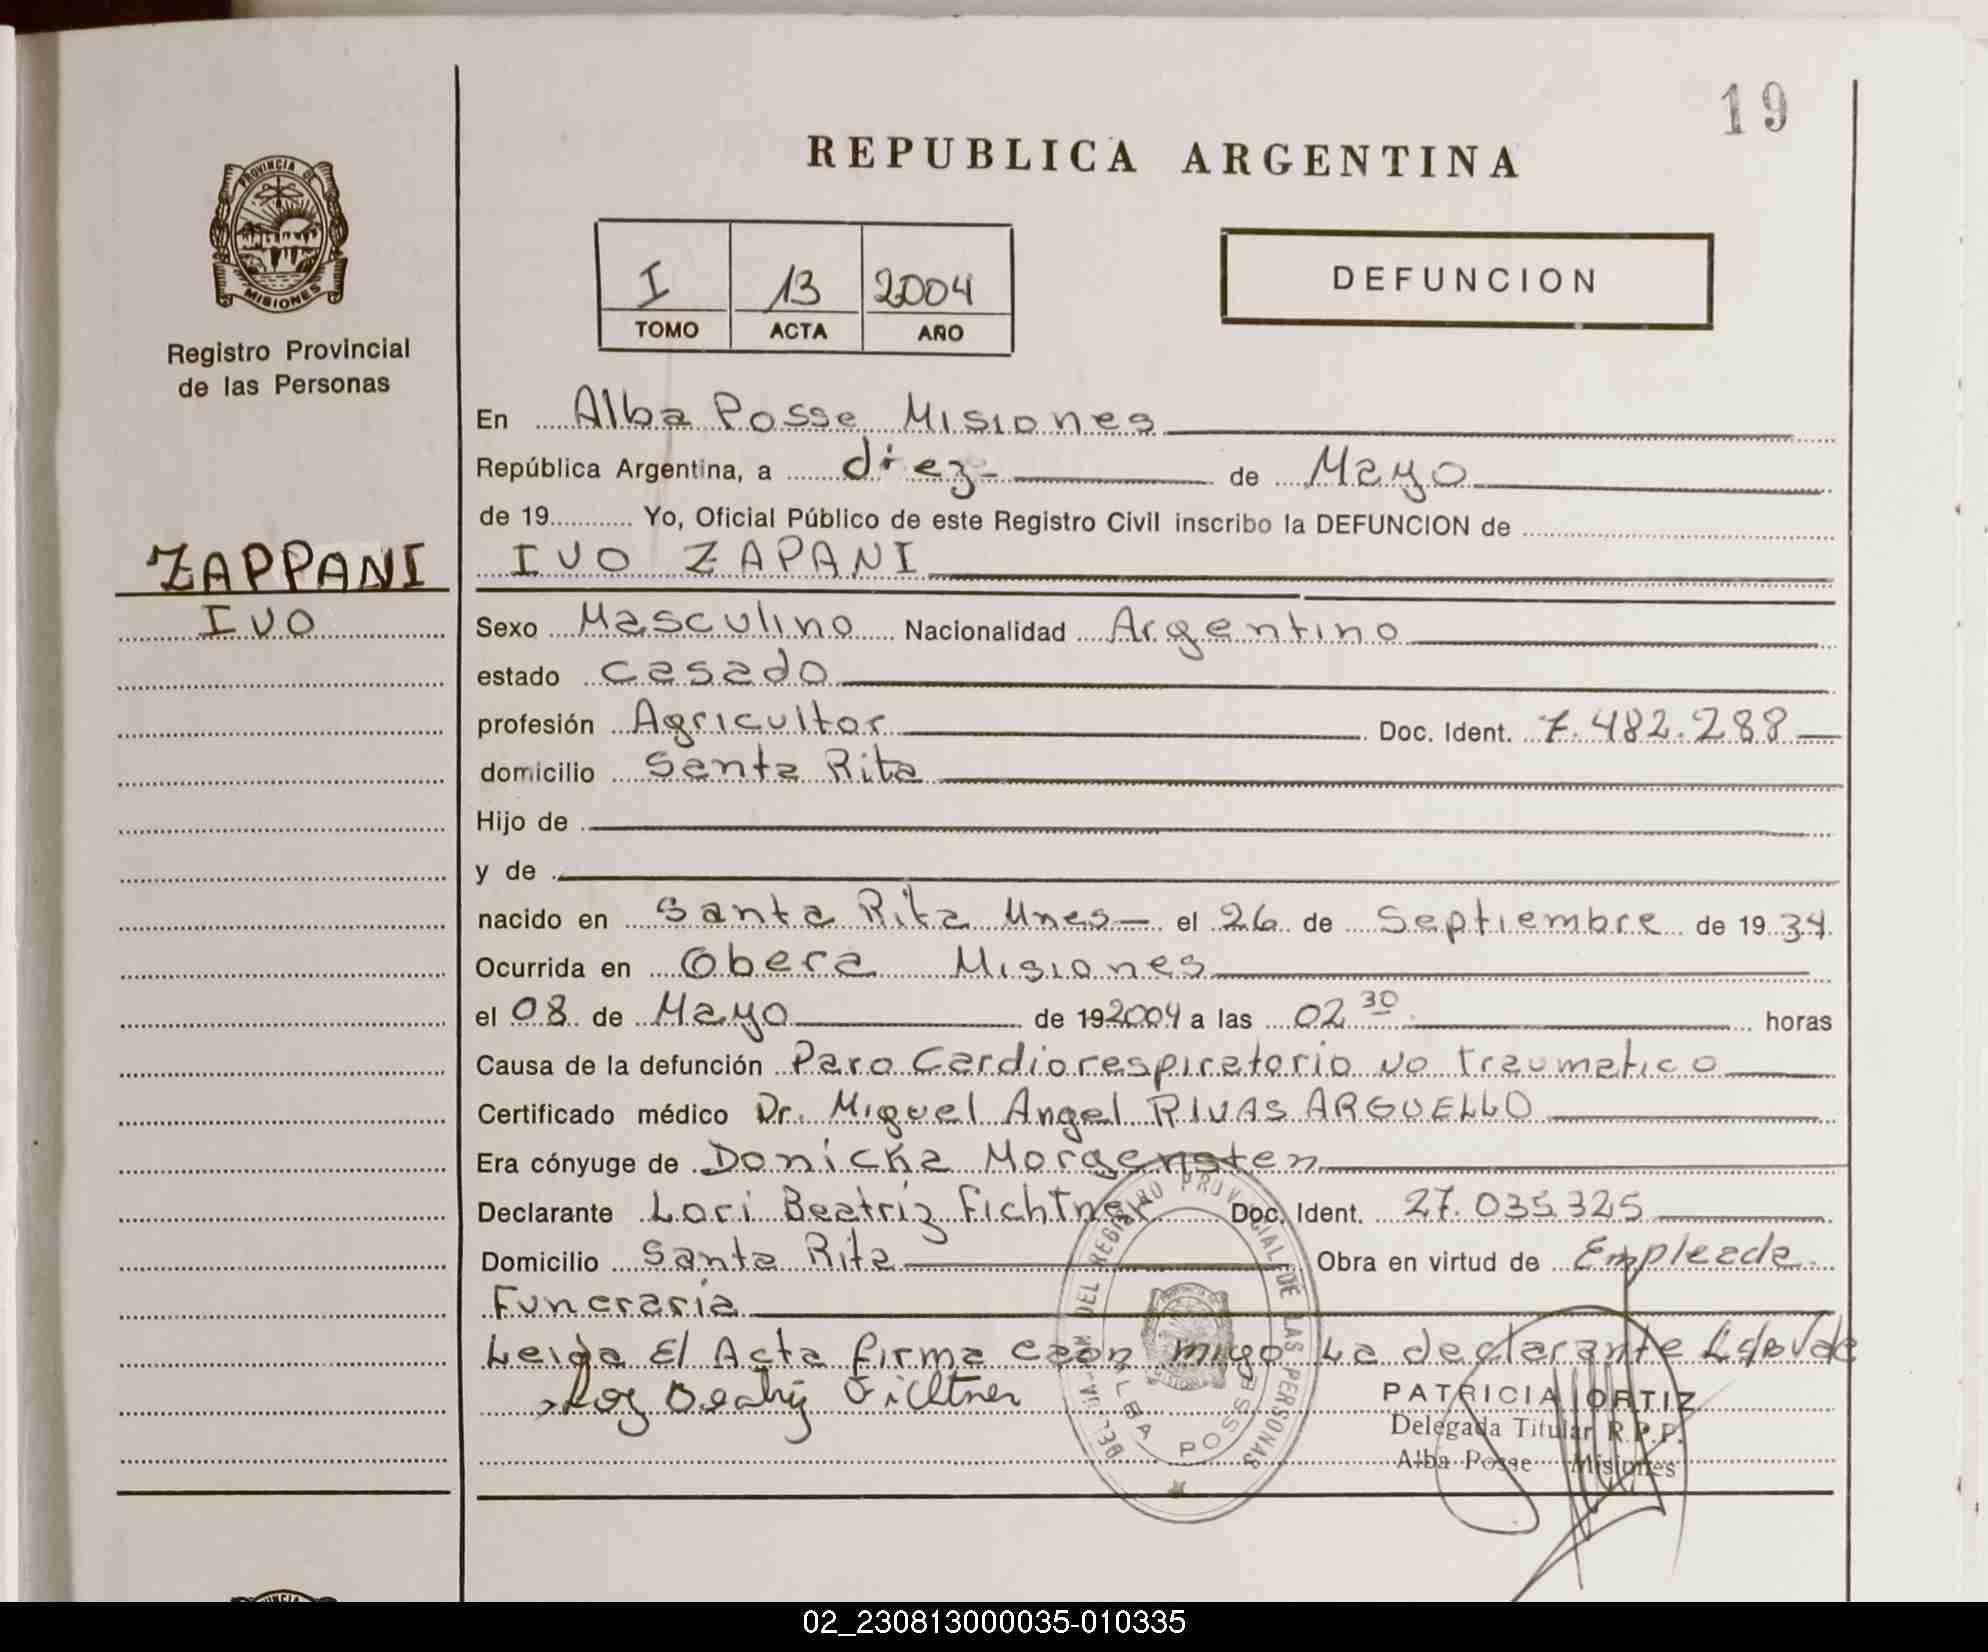 19
REPUBLICA ARGENTINA
PROVINCIA DE
MISIONES
Registro Provincial
de las Personas
I 13 2004
TOMO ACTA AÑO
DEFUNCION
En Alba Posse Misiones
República Argentina, a diez de Mayo
de 19 Yo, Oficial Público de este Registro Civil inscribo la DEFUNCION de
ZAPPANI
IVO
IVO ZAPANI
Sexo Masculino Nacionalidad Argentino
estado casado
profesión Agricultor Doc. Ident. 7.482.288
domicilio Santa Rita
Hijo de
y de
nacido en Santa Rita Mnes el 26 de Septiembre de 19 34
Ocurrida en Obera Misiones
el 08 de Mayo de 19 2004 a las 02 30 horas
Causa de la defunción Paro Cardiorespiratorio no traumatico
Certificado médico Dr. Miguel Angel RIVAS ARGUELLO
Era cónyuge de Donicka Morgensten
Declarante Lori Beatriz Fichtner Doc. Ident. 27.035.325
Domicilio Santa Rita Obra en virtud de Empleada
Funeraria
Leida El Acta firma conmigo La declarante
Beatriz Fichtner
PATRICIA ORTIZ
Delegada Titular R.P.P.
Alba Posse Misiones
DELEGACION DEL REGISTRO PROVINCIAL DE LAS PERSONAS
ALBA POSSE
02_230813000035-010335